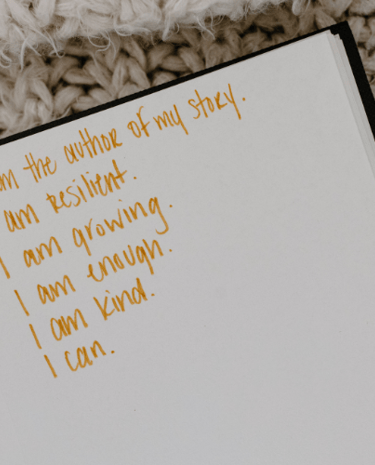 am the author of my story.
I am resilient.
I am growing.
I am enough.
I am kind.
I can.